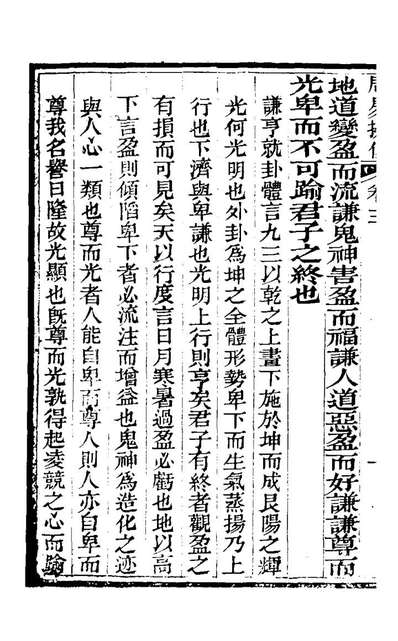 地道變盈而流謙鬼神害盈而福謙人道惡盈而好謙謙尊而
光卑而不可踰君子之終也
謙亨就卦體言九三以乾之上畫下施於坤而成艮陽之輝
光何光明也外卦爲坤之全體形勢卑下而生氣蒸揚乃上
行也下濟與卑謙也光明上行則亨矣君子有終者觀盈之
有損而可見矣天以行度言日月寒暑過盈必虧也地以高
下言盈則傾陷卑下者必流注而增益也鬼神爲造化之迹
與人心一類也尊而光者人能自卑而尊人則人亦自卑而
尊我名譽日隆故光顯也旣尊而光孰得起凌競之心而踰